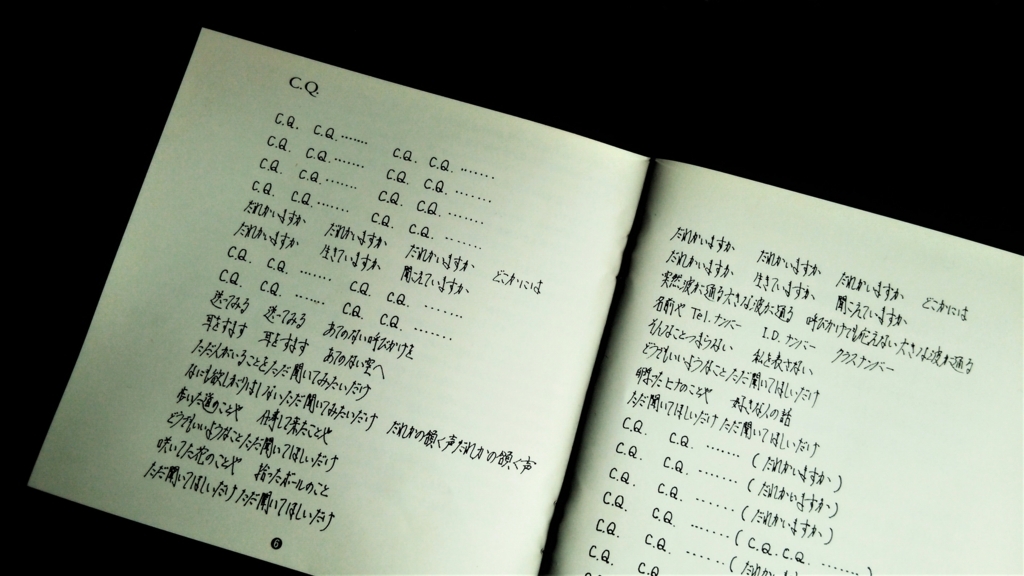 C.Q.
C.Q. C.Q........ C.Q. C.Q.........
C.Q. C.Q........ C.Q. C.Q.........
C.Q. C.Q........ C.Q. C.Q.........
C.Q. C.Q........ C.Q. C.Q.........
だれかいますか だれかいますか だれかいますか どこかには
だれかいますか 生きていますか 聞こえていますか
C.Q. C.Q........ C.Q. C.Q.........
C.Q. C.Q........ C.Q. C.Q.........
送ってみる 送ってみる あてのない呼びかけを
耳をすます 耳をすます あてのない空へ
ただしかいることをただ聞いてみたいだけ
なにも欲しがりはしないただ聞いてみたいだけ だれかの頷く声だれかの頷く声
歩いた道のことや 仕事して来たことや
どうでもいいようなことただ聞いてほしいだけ
咲いてた花のことや 拾ったボールのこと
ただ聞いてほしいだけただ聞いてほしいだけ
6
だれかいますか だれかいますか だれかいますか どこかには
だれかいますか 生きていますか 聞こえていますか
突然波が通る大きな波が通る 呼びかけても応えない大きな波が通る
名前や Tel.ナンバー I.D.ナンバー クラスナンバー
そんなことつまらない 私を表さない
どうでもいいようなことただ聞いてほしいだけ
ヒナのことや 好きな人の話
ただ聞いてほしいだけただ聞いてほしいだけ
C.Q. C.Q........ (だれかいますか)
C.Q. C.Q........ (だれかいますか)
C.Q. C.Q........ (だれかいますか)
C.Q. C.Q........ (C.Q.C.Q.........)
C.Q. C.Q........ (だれかいますか)
C.Q. C.Q.